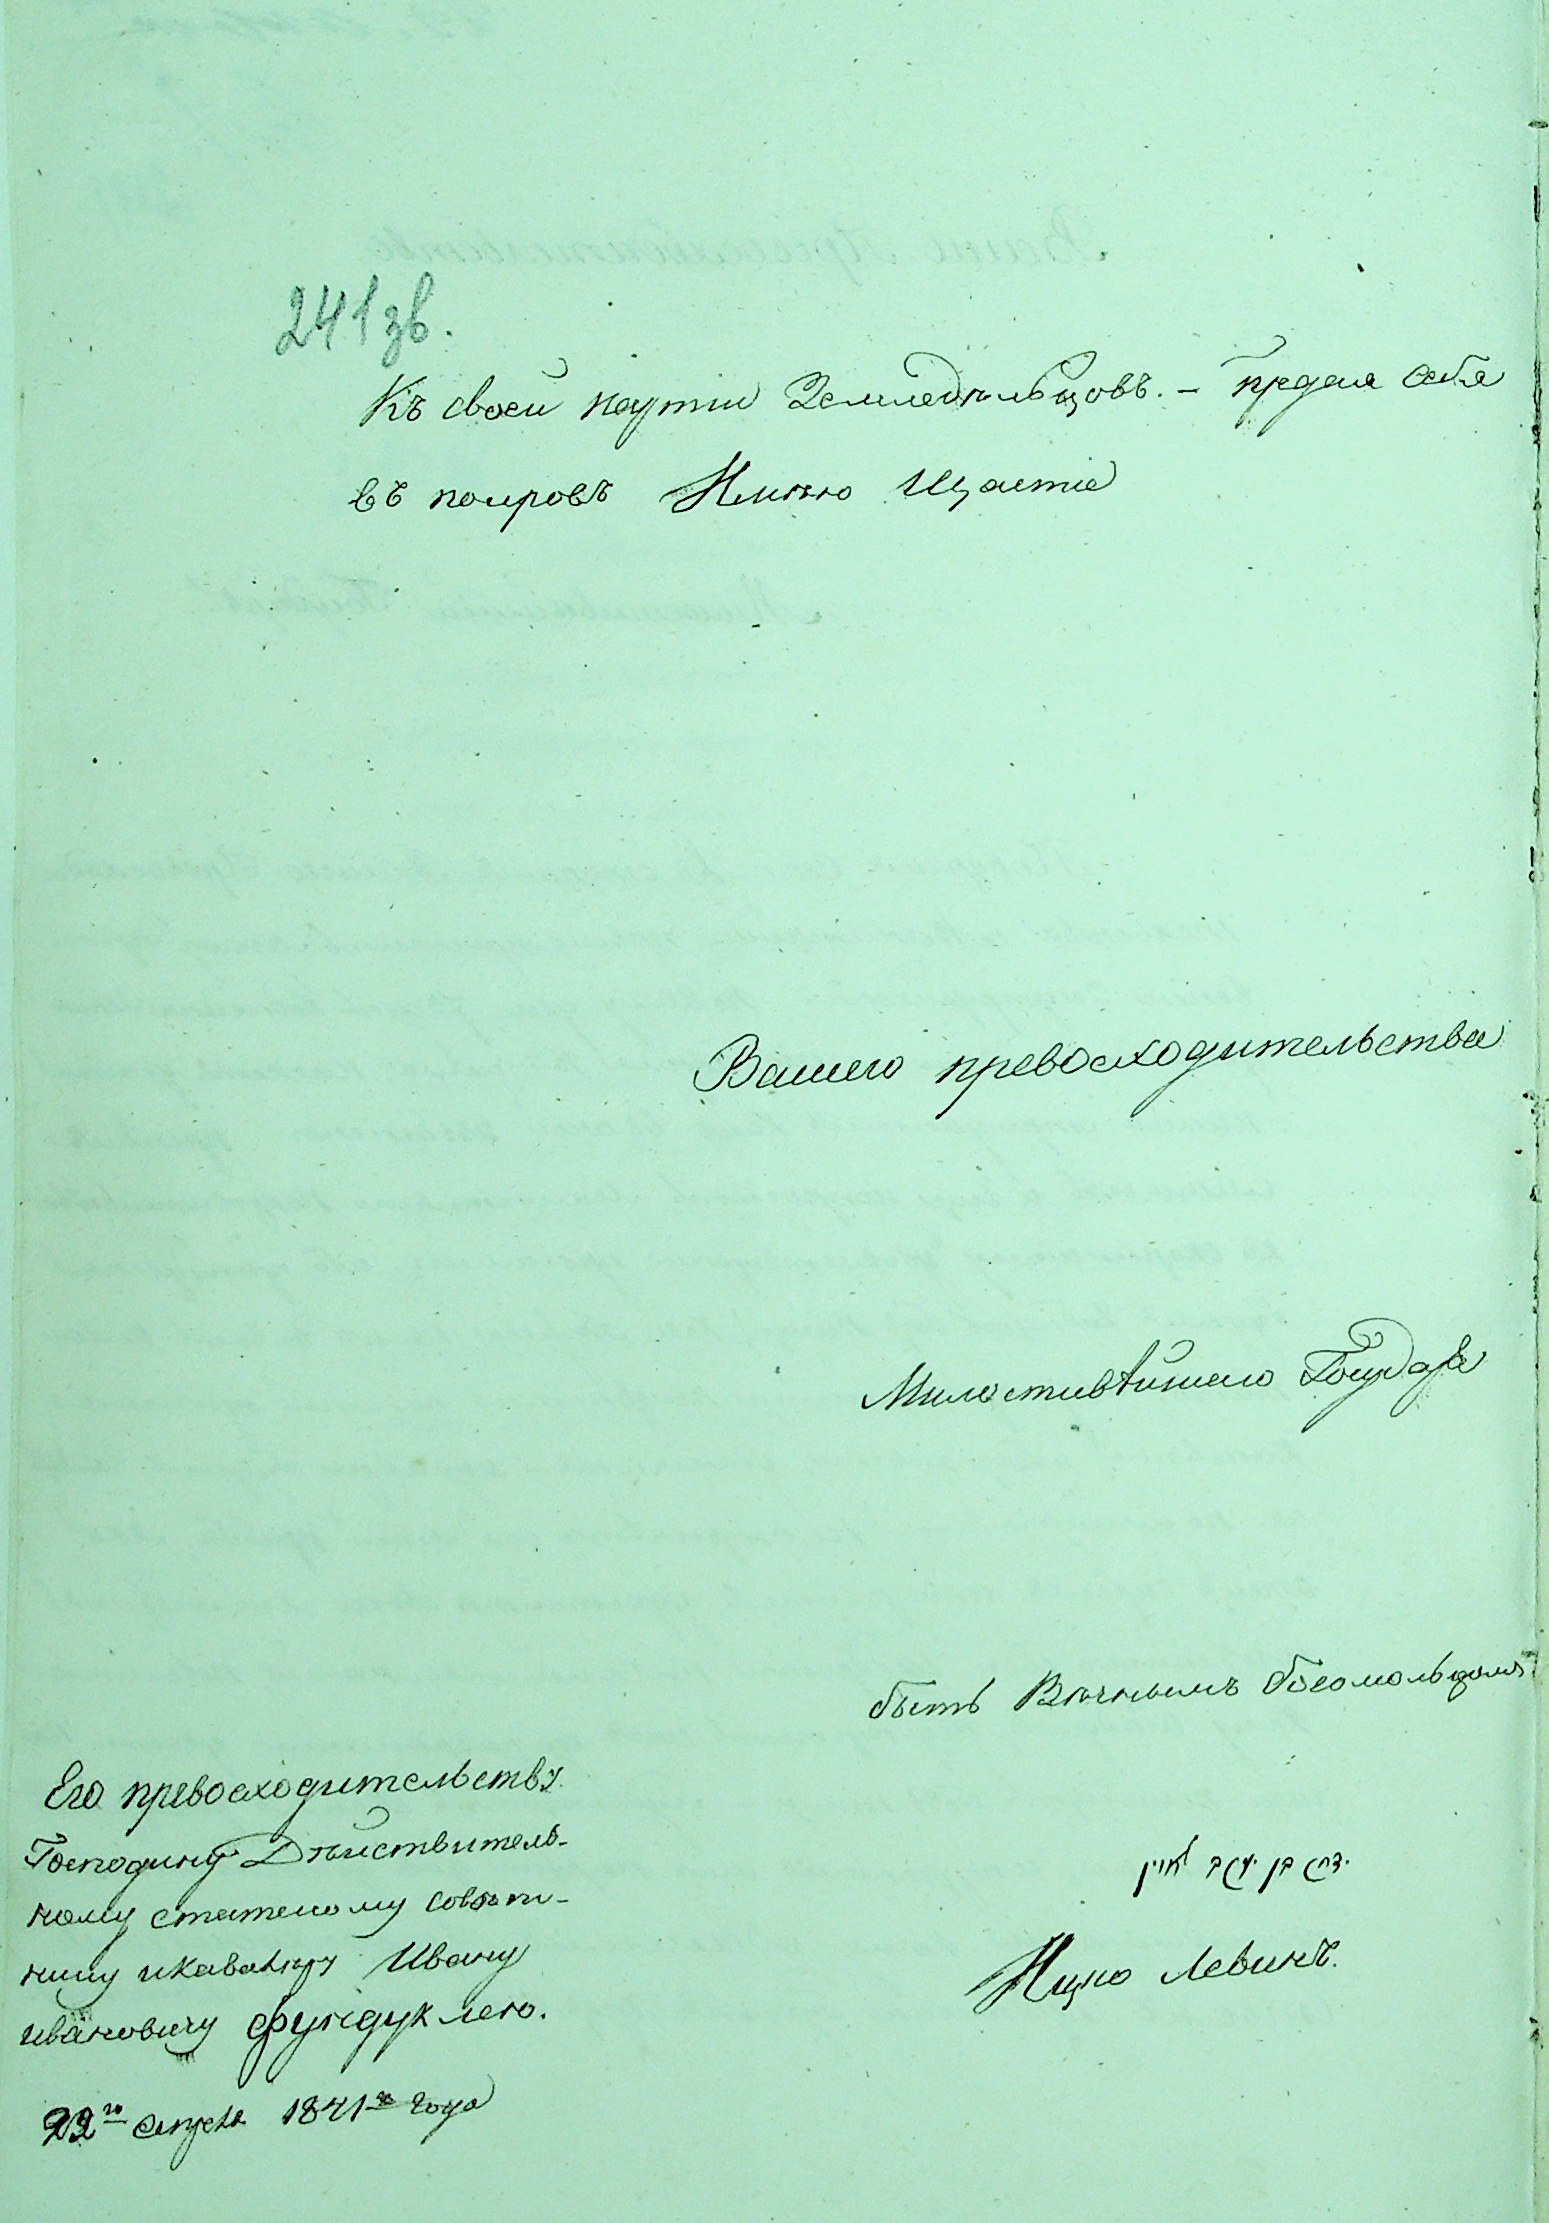 241 зв.
Къ своей партии Земледѣльцовъ. – предая себя
въ покровъ Имѣю Щастіе
Вашего превосходительства
Милостивѣйшего Государя
быть Вѣчнымъ богомольцомъ
Его превосходительству
Господину Дѣйствитель-
ному статскому совѣт-
нику и кавалеру Ивану
ивановичу фундуклею.
22го апреля 1841го года
יצחק בן יעקב לעווין
Ицко Левинъ.